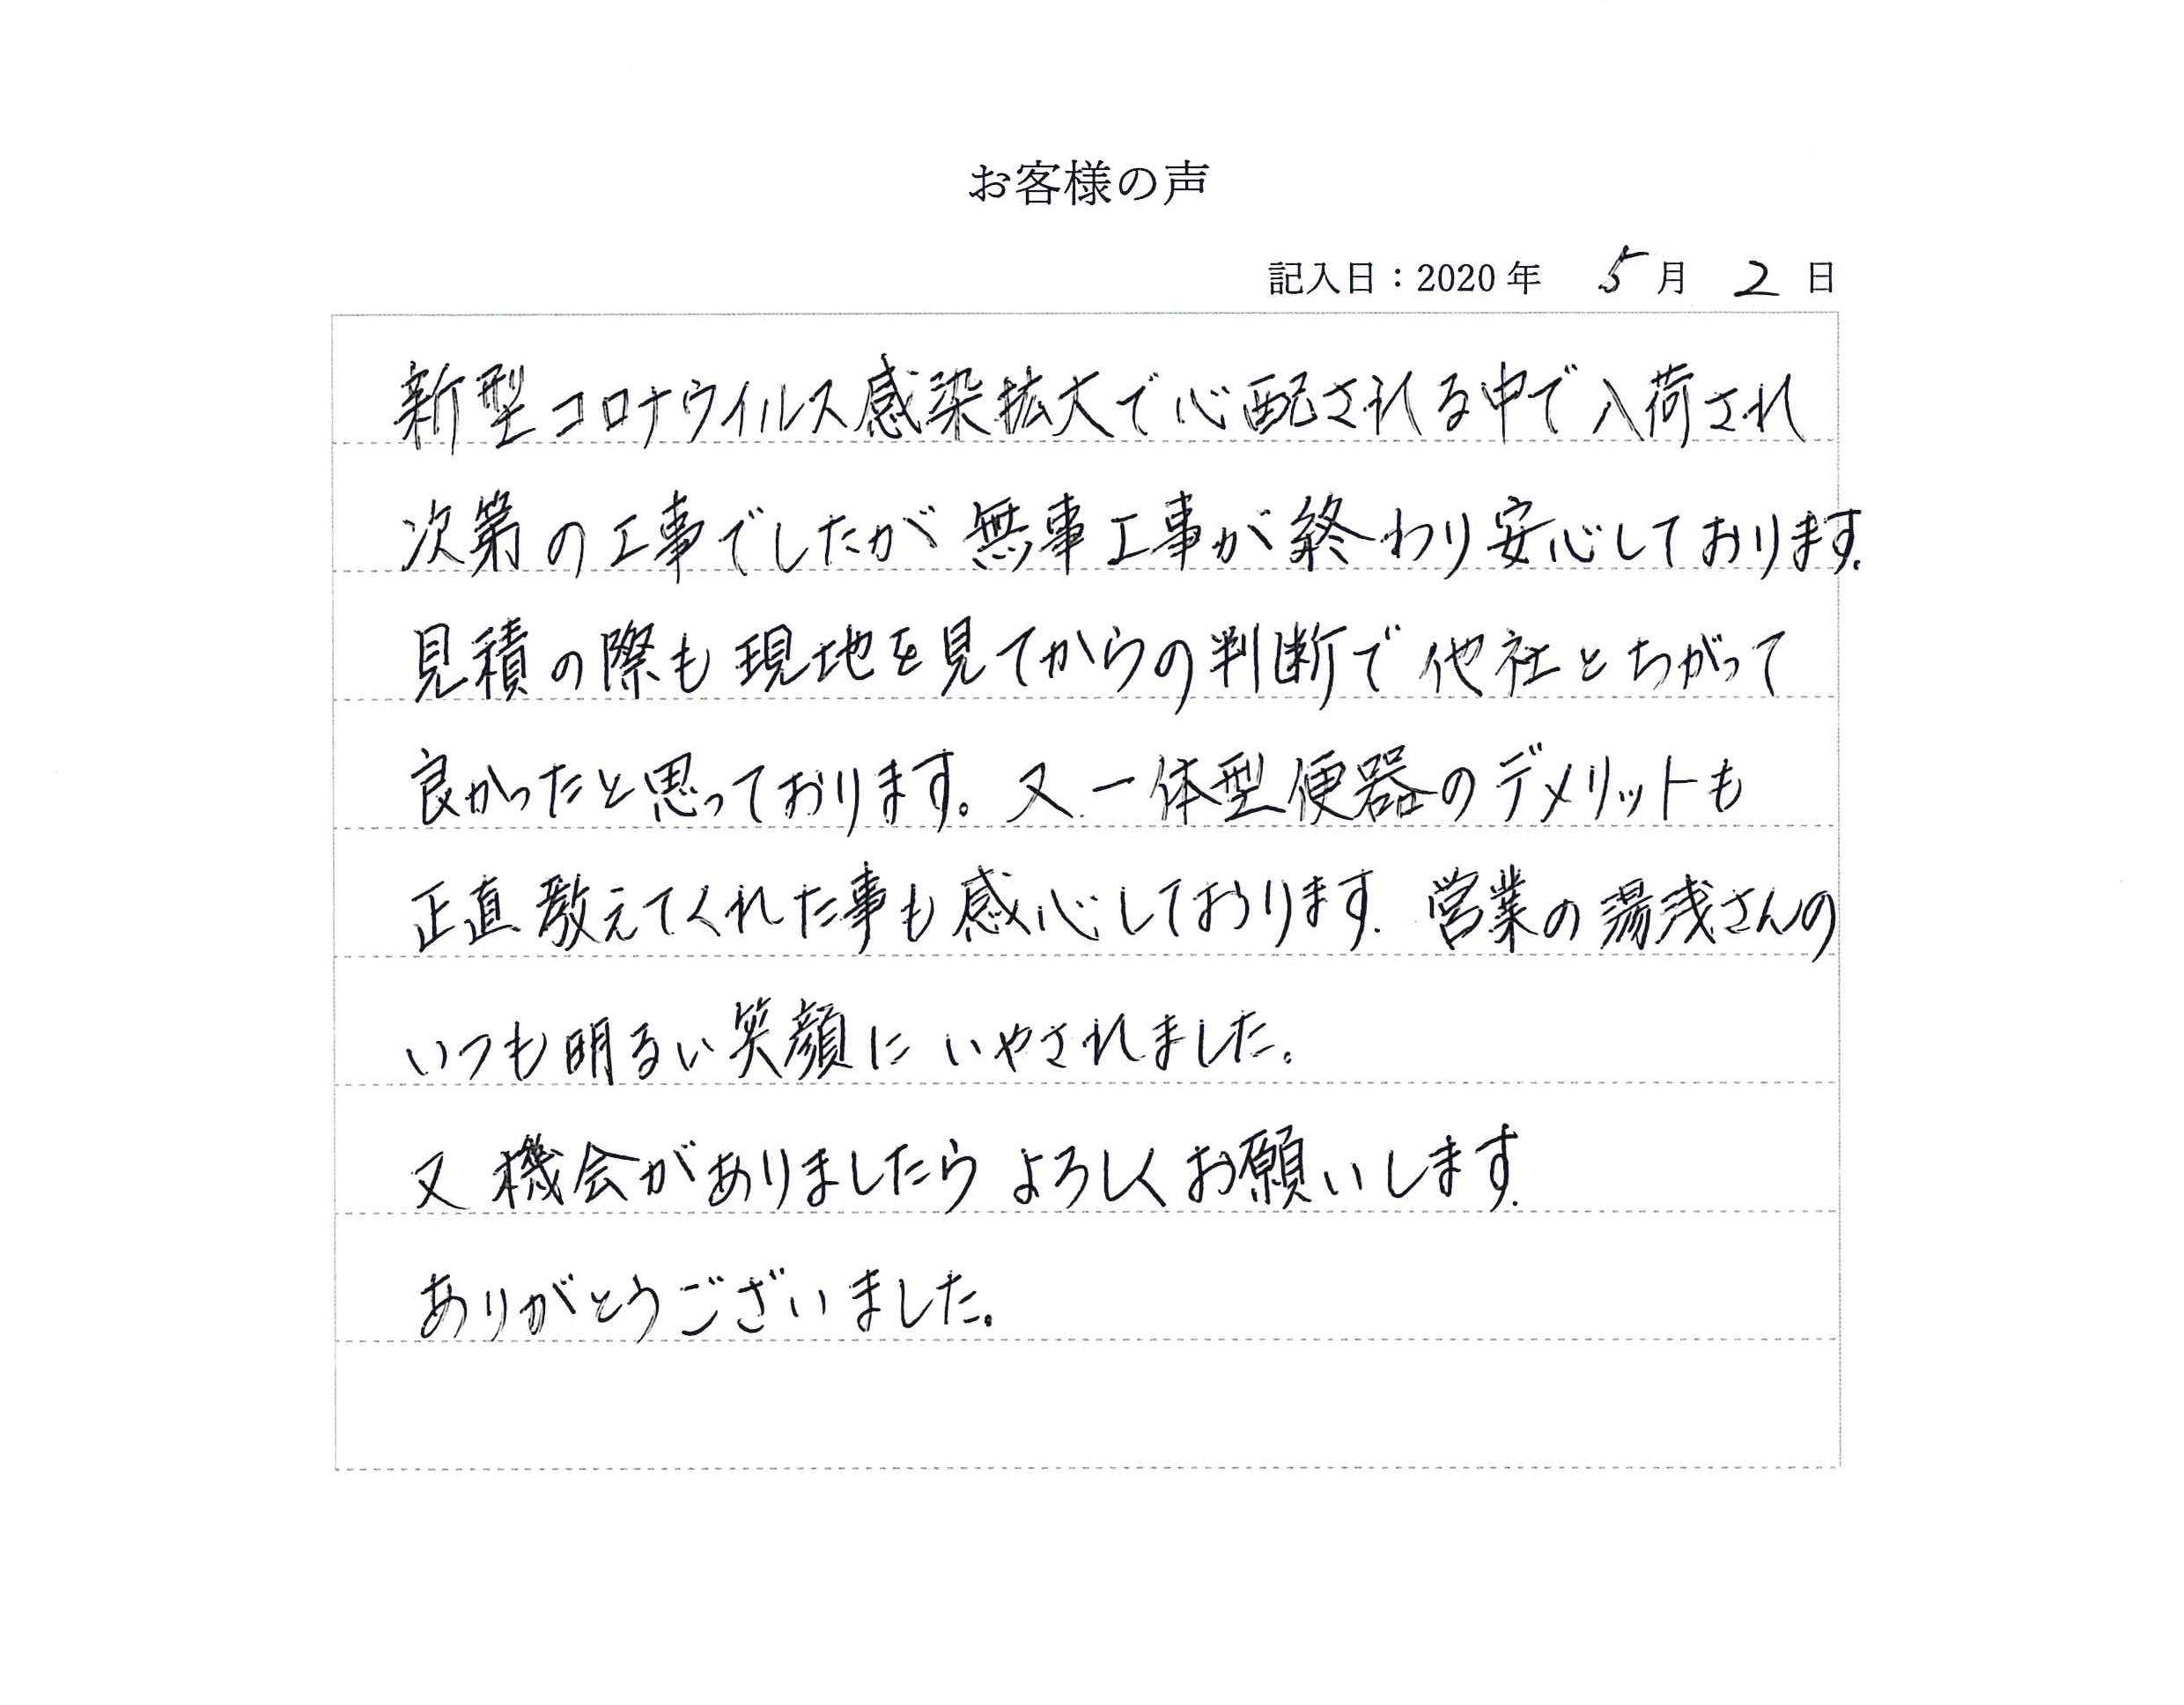 お客様の声
記入日：2020年 5月 2日
新型コロナウイルス感染拡大で心配される中で入荷され
次第の工事でしたが無事工事が終わり安心しております.
見積の際も現地を見てからの判断で他社とちがって
良かったと思っております。又一体型便器のデメリットも
正直教えてくれた事も感心しております. 営業の湯浅さんの
いつも明るい笑顔にいやされました。
又機会がありましたらよろしくお願いします.
ありがとうございました。